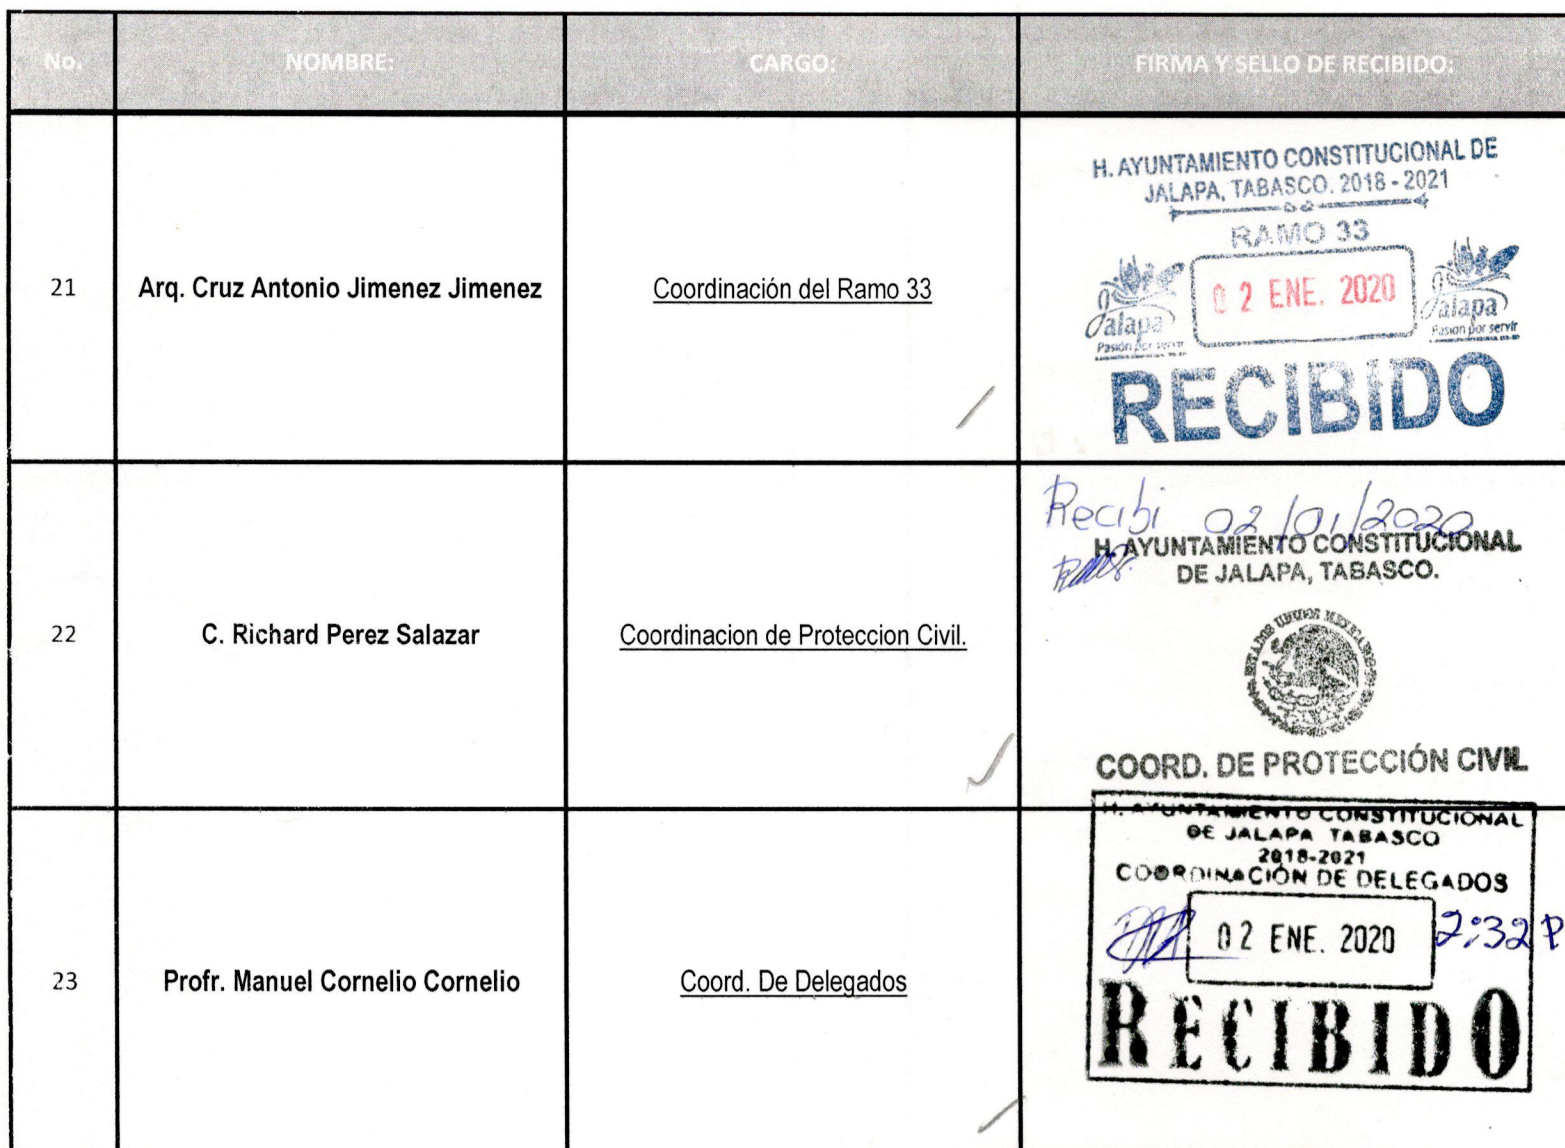 No. NOMBRE: CARGO: FIRMA Y SELLO DE RECIBIDO:
21 Arq. Cruz Antonio Jimenez Jimenez Coordinación del Ramo 33
H. AYUNTAMIENTO CONSTITUCIONAL DE
JALAPA, TABASCO. 2018 - 2021
RAMO 33
02 ENE. 2020
Jalapa Jalapa
Pasión por servir Pasión por servir
RECIBIDO
22 C. Richard Perez Salazar Coordinacion de Proteccion Civil.
Recibi 02/01/2020
H. AYUNTAMIENTO CONSTITUCIONAL
DE JALAPA, TABASCO.
ESTADOS UNIDOS MEXICANOS
COORD. DE PROTECCIÓN CIVIL
23 Profr. Manuel Cornelio Cornelio Coord. De Delegados
H. AYUNTAMIENTO CONSTITUCIONAL
DE JALAPA TABASCO
2018-2021
COORDINACIÓN DE DELEGADOS
02 ENE. 2020 2:32 P
RECIBIDO